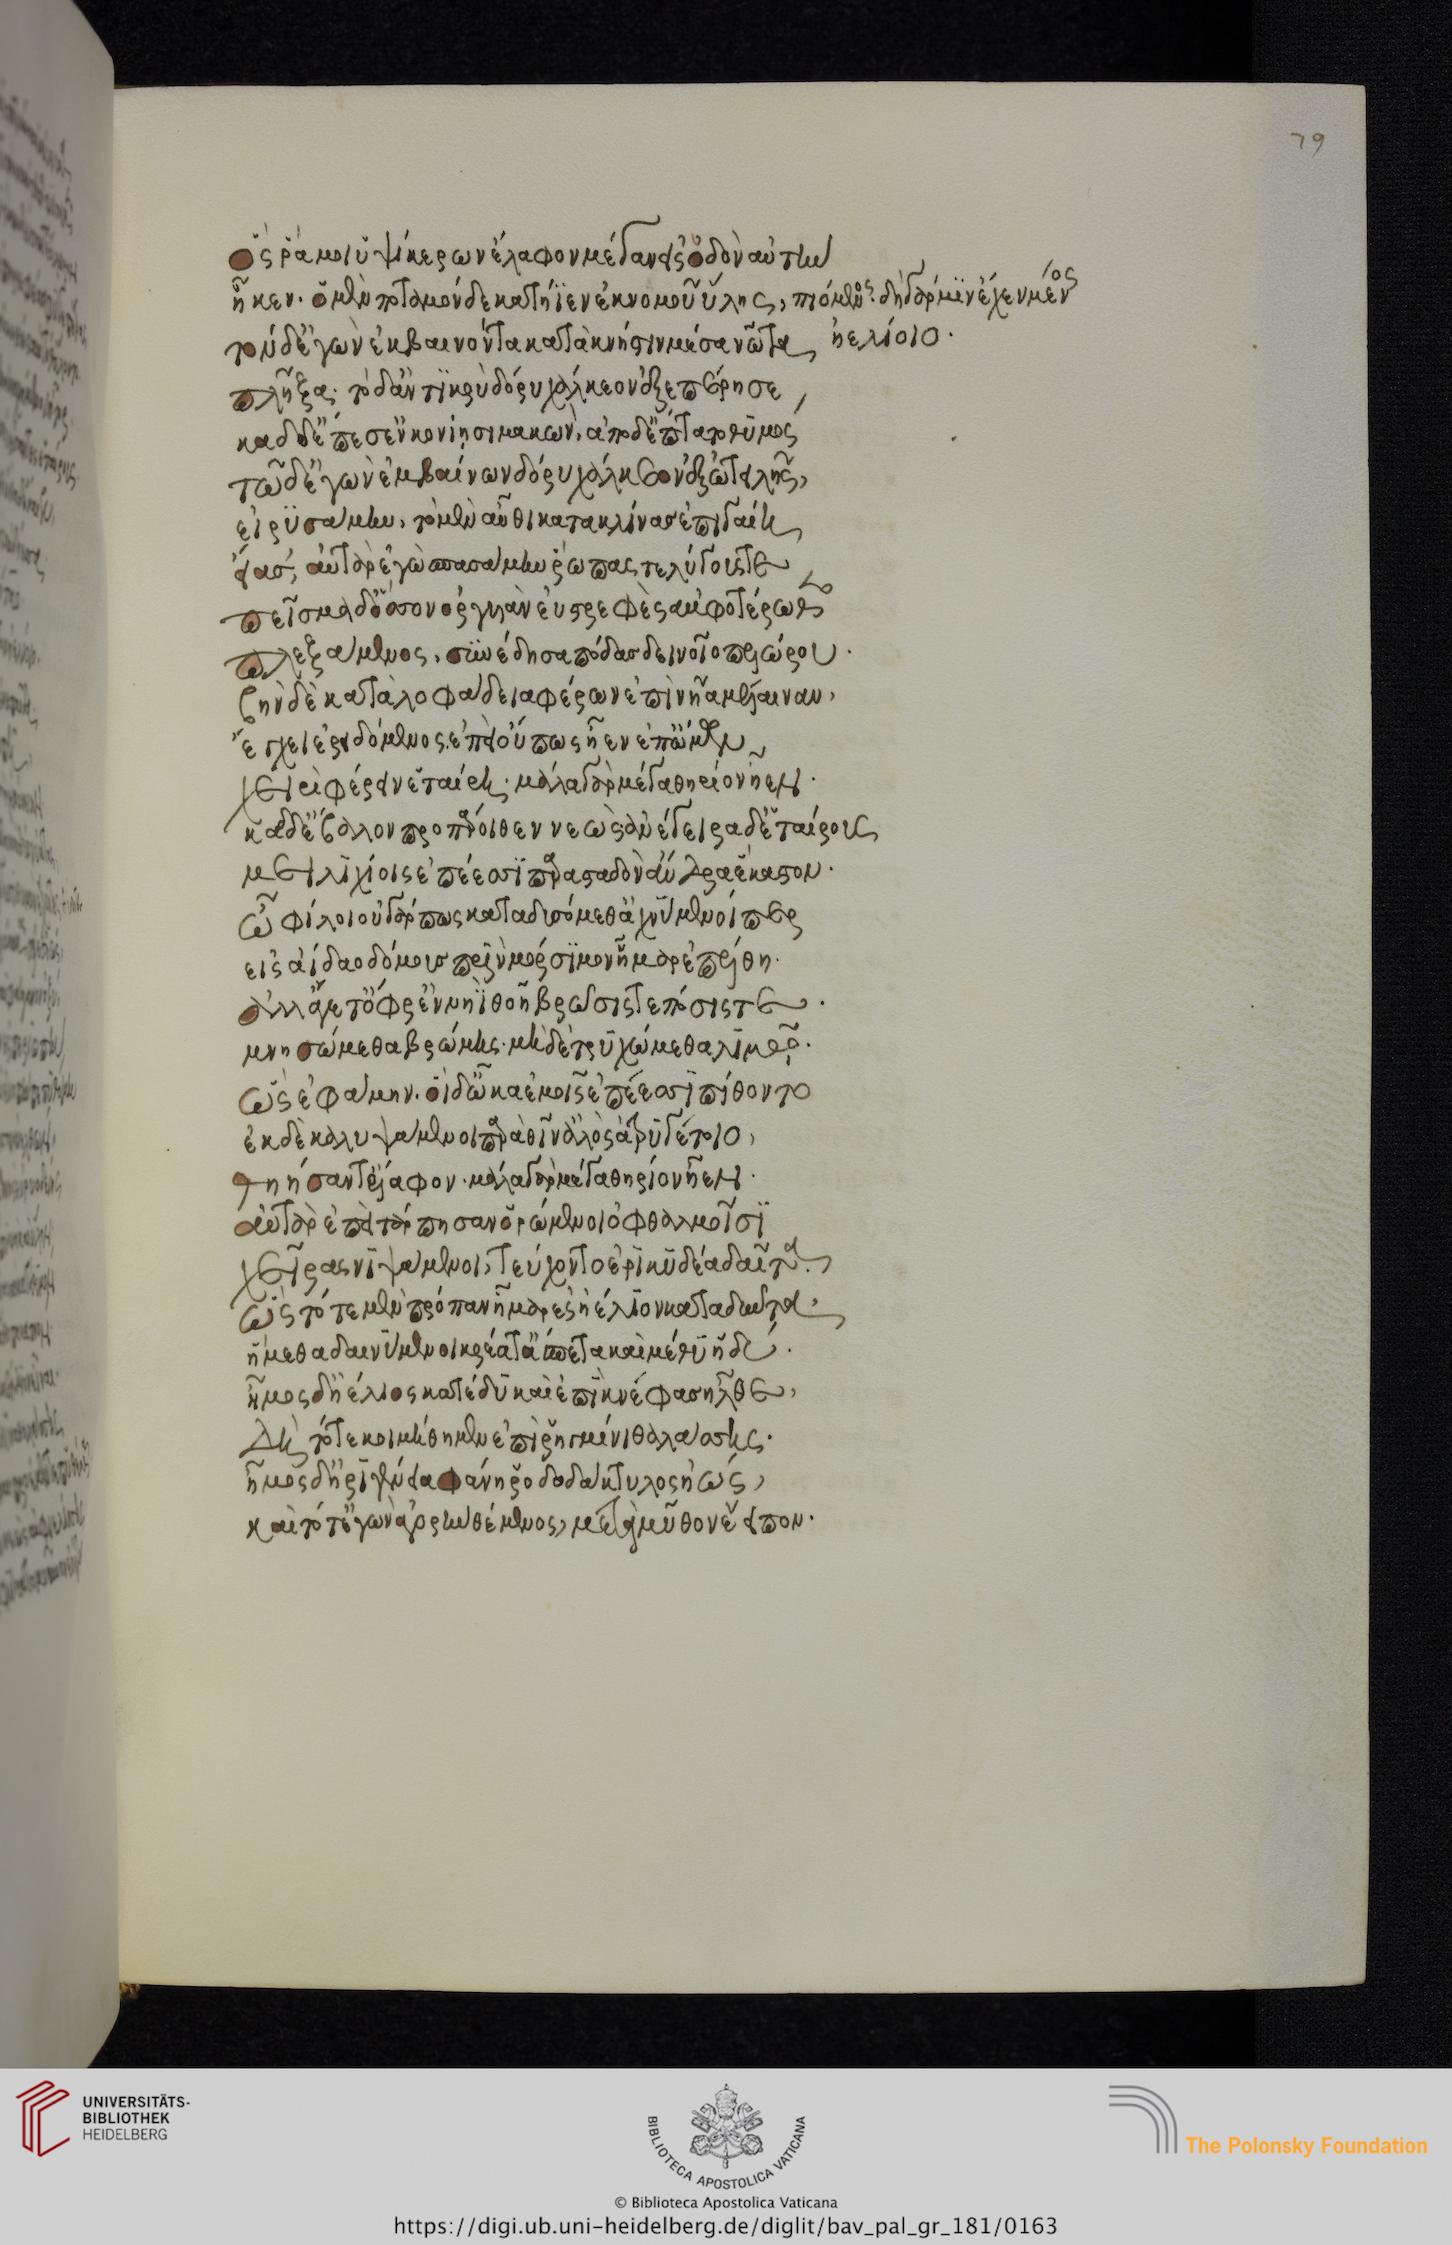 79
ὅς ῥά μοι ὑψίκερων ἔλαφον μέγαν εἰς ὁδὸν αὐτὴν
ἧκεν. ὁ μὲν ποταμόνδε κατήϊεν ἐκ νομοῦ ὕλης, πιόμενος. δὴ γάρ μιν ἔχεν μένος
ἠελίοιο.
τὸν δ' ἐγὼν ἐκβαίνοντα κατὰ κνῆστιν μέσα νῶτα
πλῆξα. τὸ δ' ἀντικρὺ δόρυ χάλκεον ἐξεπέρησε
καδ δ' ἔπεσ' ἐν κονίῃσι μακών, ἀπὸ δ' ἔπτατο θυμός
τῶ δ' ἐγὼν ἐμβαίνων δόρυ χάλκεον ἐξ ὠτειλῆς,
εἰρυσάμην, τὸ μὲν αὖθι κατακλίνας ἐπὶ γαίη
εἴασ', αὐτὰρ ἐγὼ σπασάμην ῥῶπας τε λύγους τε
πεῖσμα δ' ὅσον ὄργυιαν ἐυστρεφὲς ἀμφοτέρωθεν
πλεξάμενος, συνέδησα πόδας δεινοῖο πελώρου.
βῆν δὲ καταλοφάδεια φέρων ἐπὶ νῆα μέλαιναν,
ἔγχει ἐρειδόμενος. ἐπεὶ οὔπως ἦεν ἐπ' ὤμου
χειρὶ φέρειν ἑτέρη. μάλα γὰρ μέγα θηρίον ἦεν.
καδ δ' ἔβαλον προπάροιθεν νεώς ἀνέγειρα δ' ἑταίρους
μειλιχίοις ἐπέεσι παρασταδὸν ἄνδρα ἕκαστον.
ὦ φίλοι οὐ γάρ πως καταδυσόμεθ' ἀχνύμενοί περ
εἰς ἀίδαο δόμους πρὶν μόρσιμον ἦμαρ ἐπέλθη.
ἀλλ' ἄγετ' ὄφρ' ἐν νηῒ θοῇ βρῶσίς τε πόσις τε.
μνησώμεθα βρώμης. μηδὲ τρυχώμεθα λιμῷ.
ὣς ἐφάμην. οἱ δ' ὦκα ἐμοῖς ἐπέεσι πίθοντο
ἐκ δὲ καλυψάμενοι παρὰ θῖν' ἁλὸς ἀτρυγέτοιο,
θηήσαντ' ἔλαφον. μάλα γὰρ μέγα θηρίον ἦεν.
αὐτὰρ ἐπεὶ τάρπησαν ὁρώμενοι ὀφθαλμοῖσι
χεῖρας νιψάμενοι, τεύχοντο ἐρικυδέα δαῖτα.
ὣς τότε μὲν πρόπαν ἦμαρ ἐς ἠέλιον καταδύντα,
ἥμεθα δαινύμενοι κρέατ' ἄσπετα καὶ μέθυ ἡδύ.
ἦμος δ' ἠέλιος κατέδυ καὶ ἐπὶ κνέφας ἦλθε,
δὴ τότε κοιμήθημεν ἐπὶ ῥηγμῖνι θαλάσσης.
ἦμος δ' ἠριγένεια φάνη ῥοδοδάκτυλος ἠώς,
καὶ τότ' ἐγὼν ἀγορὴν θέμενος, μετὰ μῦθον ἔειπον.
UNIVERSITÄTS-
BIBLIOTHEK
HEIDELBERG
BIBLIOTECA APOSTOLICA VATICANA
© Biblioteca Apostolica Vaticana
The Polonsky Foundation
https://digi.ub.uni-heidelberg.de/diglit/bav_pal_gr_181/0163